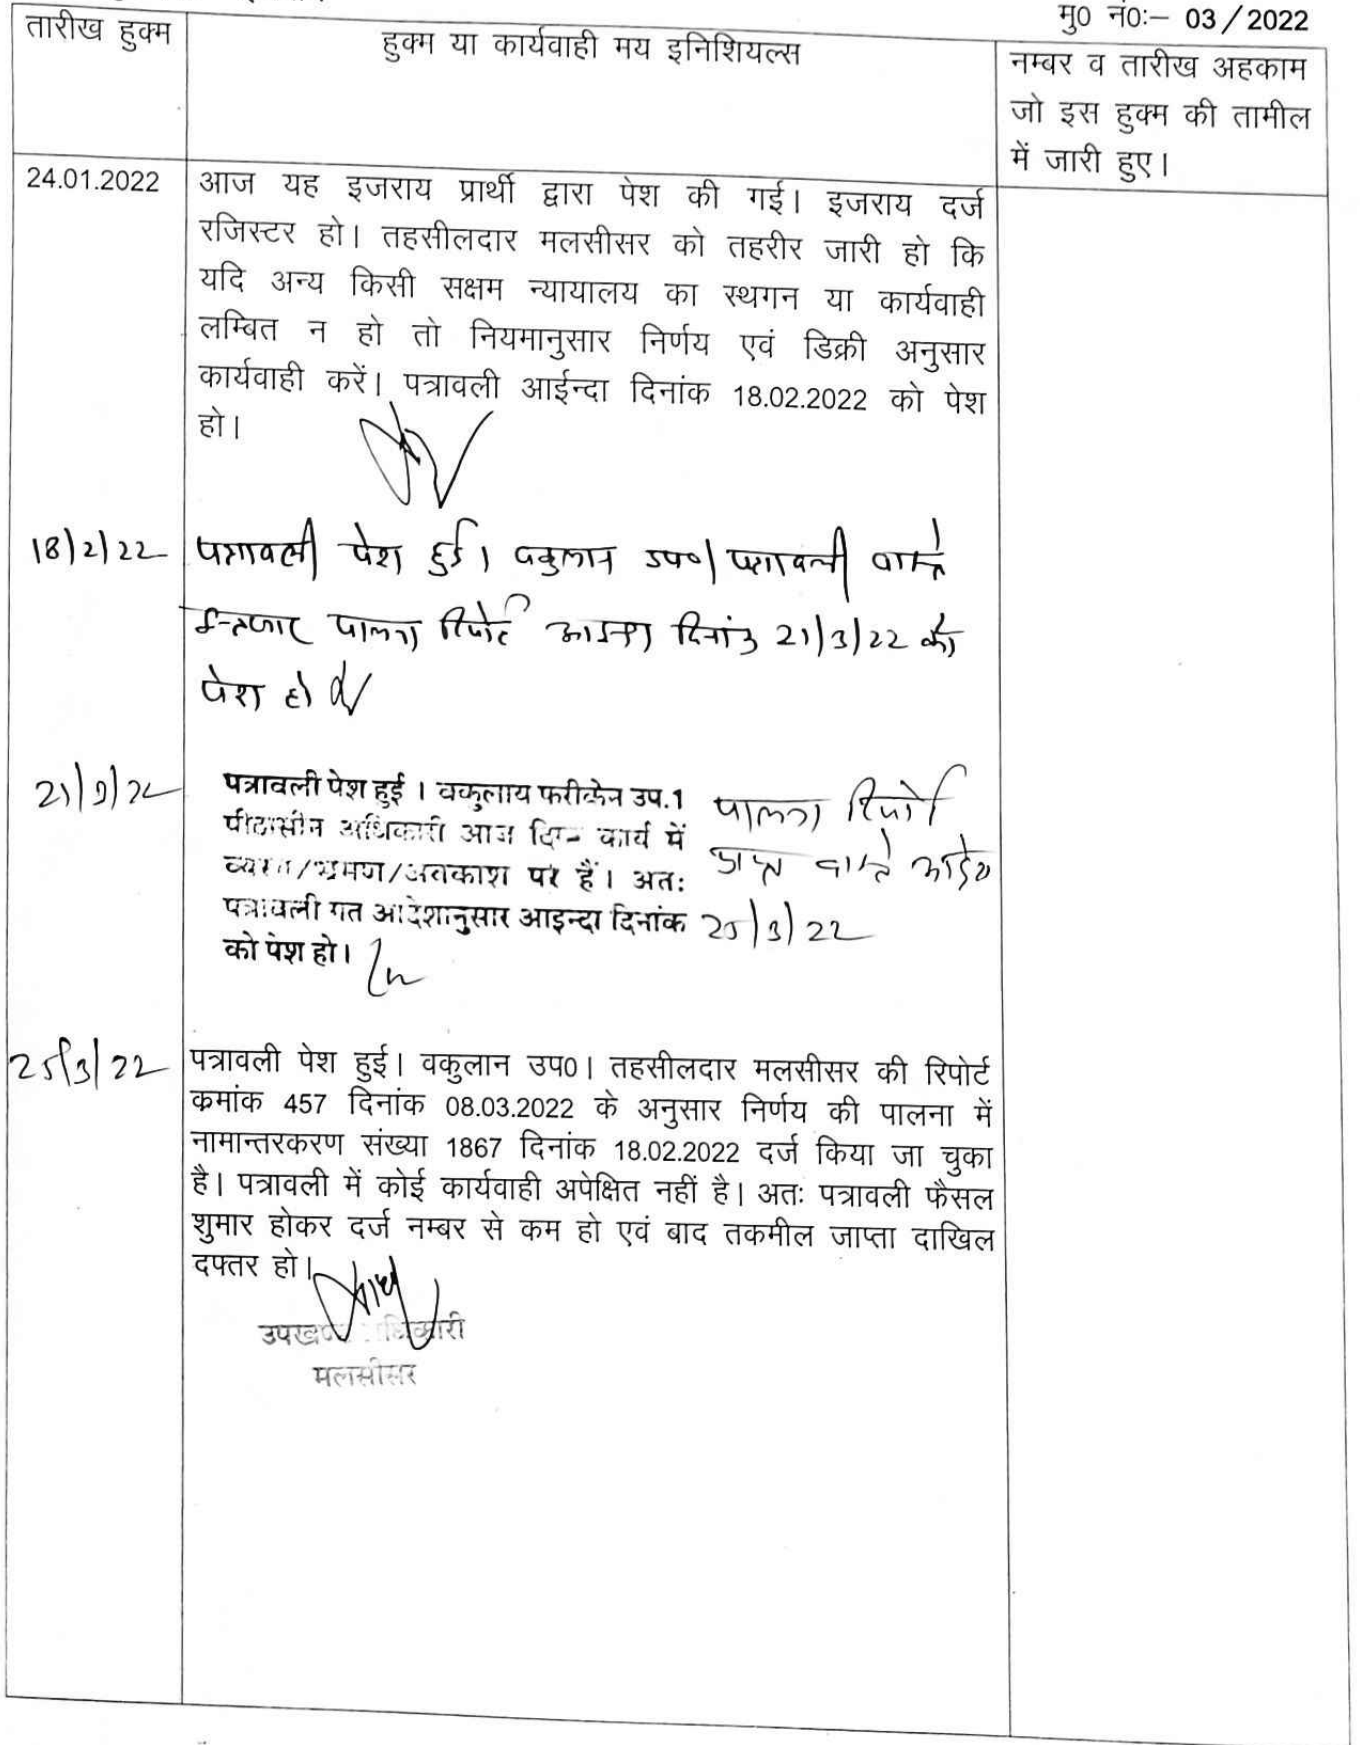 मु0 नं0:– 03/2022
तारीख हुक्म
हुक्म या कार्यवाही मय इनिशियल्स
नम्बर व तारीख अहकाम
जो इस हुक्म की तामील
में जारी हुए।
24.01.2022
आज यह इजराय प्रार्थी द्वारा पेश की गई। इजराय दर्ज
रजिस्टर हो। तहसीलदार मलसीसर को तहरीर जारी हो कि
यदि अन्य किसी सक्षम न्यायालय का स्थगन या कार्यवाही
लम्बित न हो तो नियमानुसार निर्णय एवं डिक्री अनुसार
कार्यवाही करें। पत्रावली आईन्दा दिनांक 18.02.2022 को पेश
हो।
18/2/22
पत्रावली पेश हुई। वकुलान उप०। पत्रावली वास्ते
इन्तजार पालना रिपोर्ट आइन्दा दिनांक 21/3/22 को
पेश हो
पत्रावली पेश हुई। वकुलाय फरीकेन उप.1
पीठासीन अधिकारी आज कार्य में
व्यस्त/भ्रमण/अवकाश पर हैं। अतः
पत्रावली गत आदेशानुसार आइन्दा दिनांक 25/3/22
को पेश हो।
पालना रिपोर्ट
प्राप्त वास्ते आदेश
25/3/22
पत्रावली पेश हुई। वकुलान उप0। तहसीलदार मलसीसर की रिपोर्ट
क्रमांक 457 दिनांक 08.03.2022 के अनुसार निर्णय की पालना में
नामान्तरकरण संख्या 1867 दिनांक 18.02.2022 दर्ज किया जा चुका
है। पत्रावली में कोई कार्यवाही अपेक्षित नहीं है। अतः पत्रावली फैसल
शुमार होकर दर्ज नम्बर से कम हो एवं बाद तकमील जाप्ता दाखिल
दफ्तर हो।
उपखण्ड अधिकारी
मलसीसर